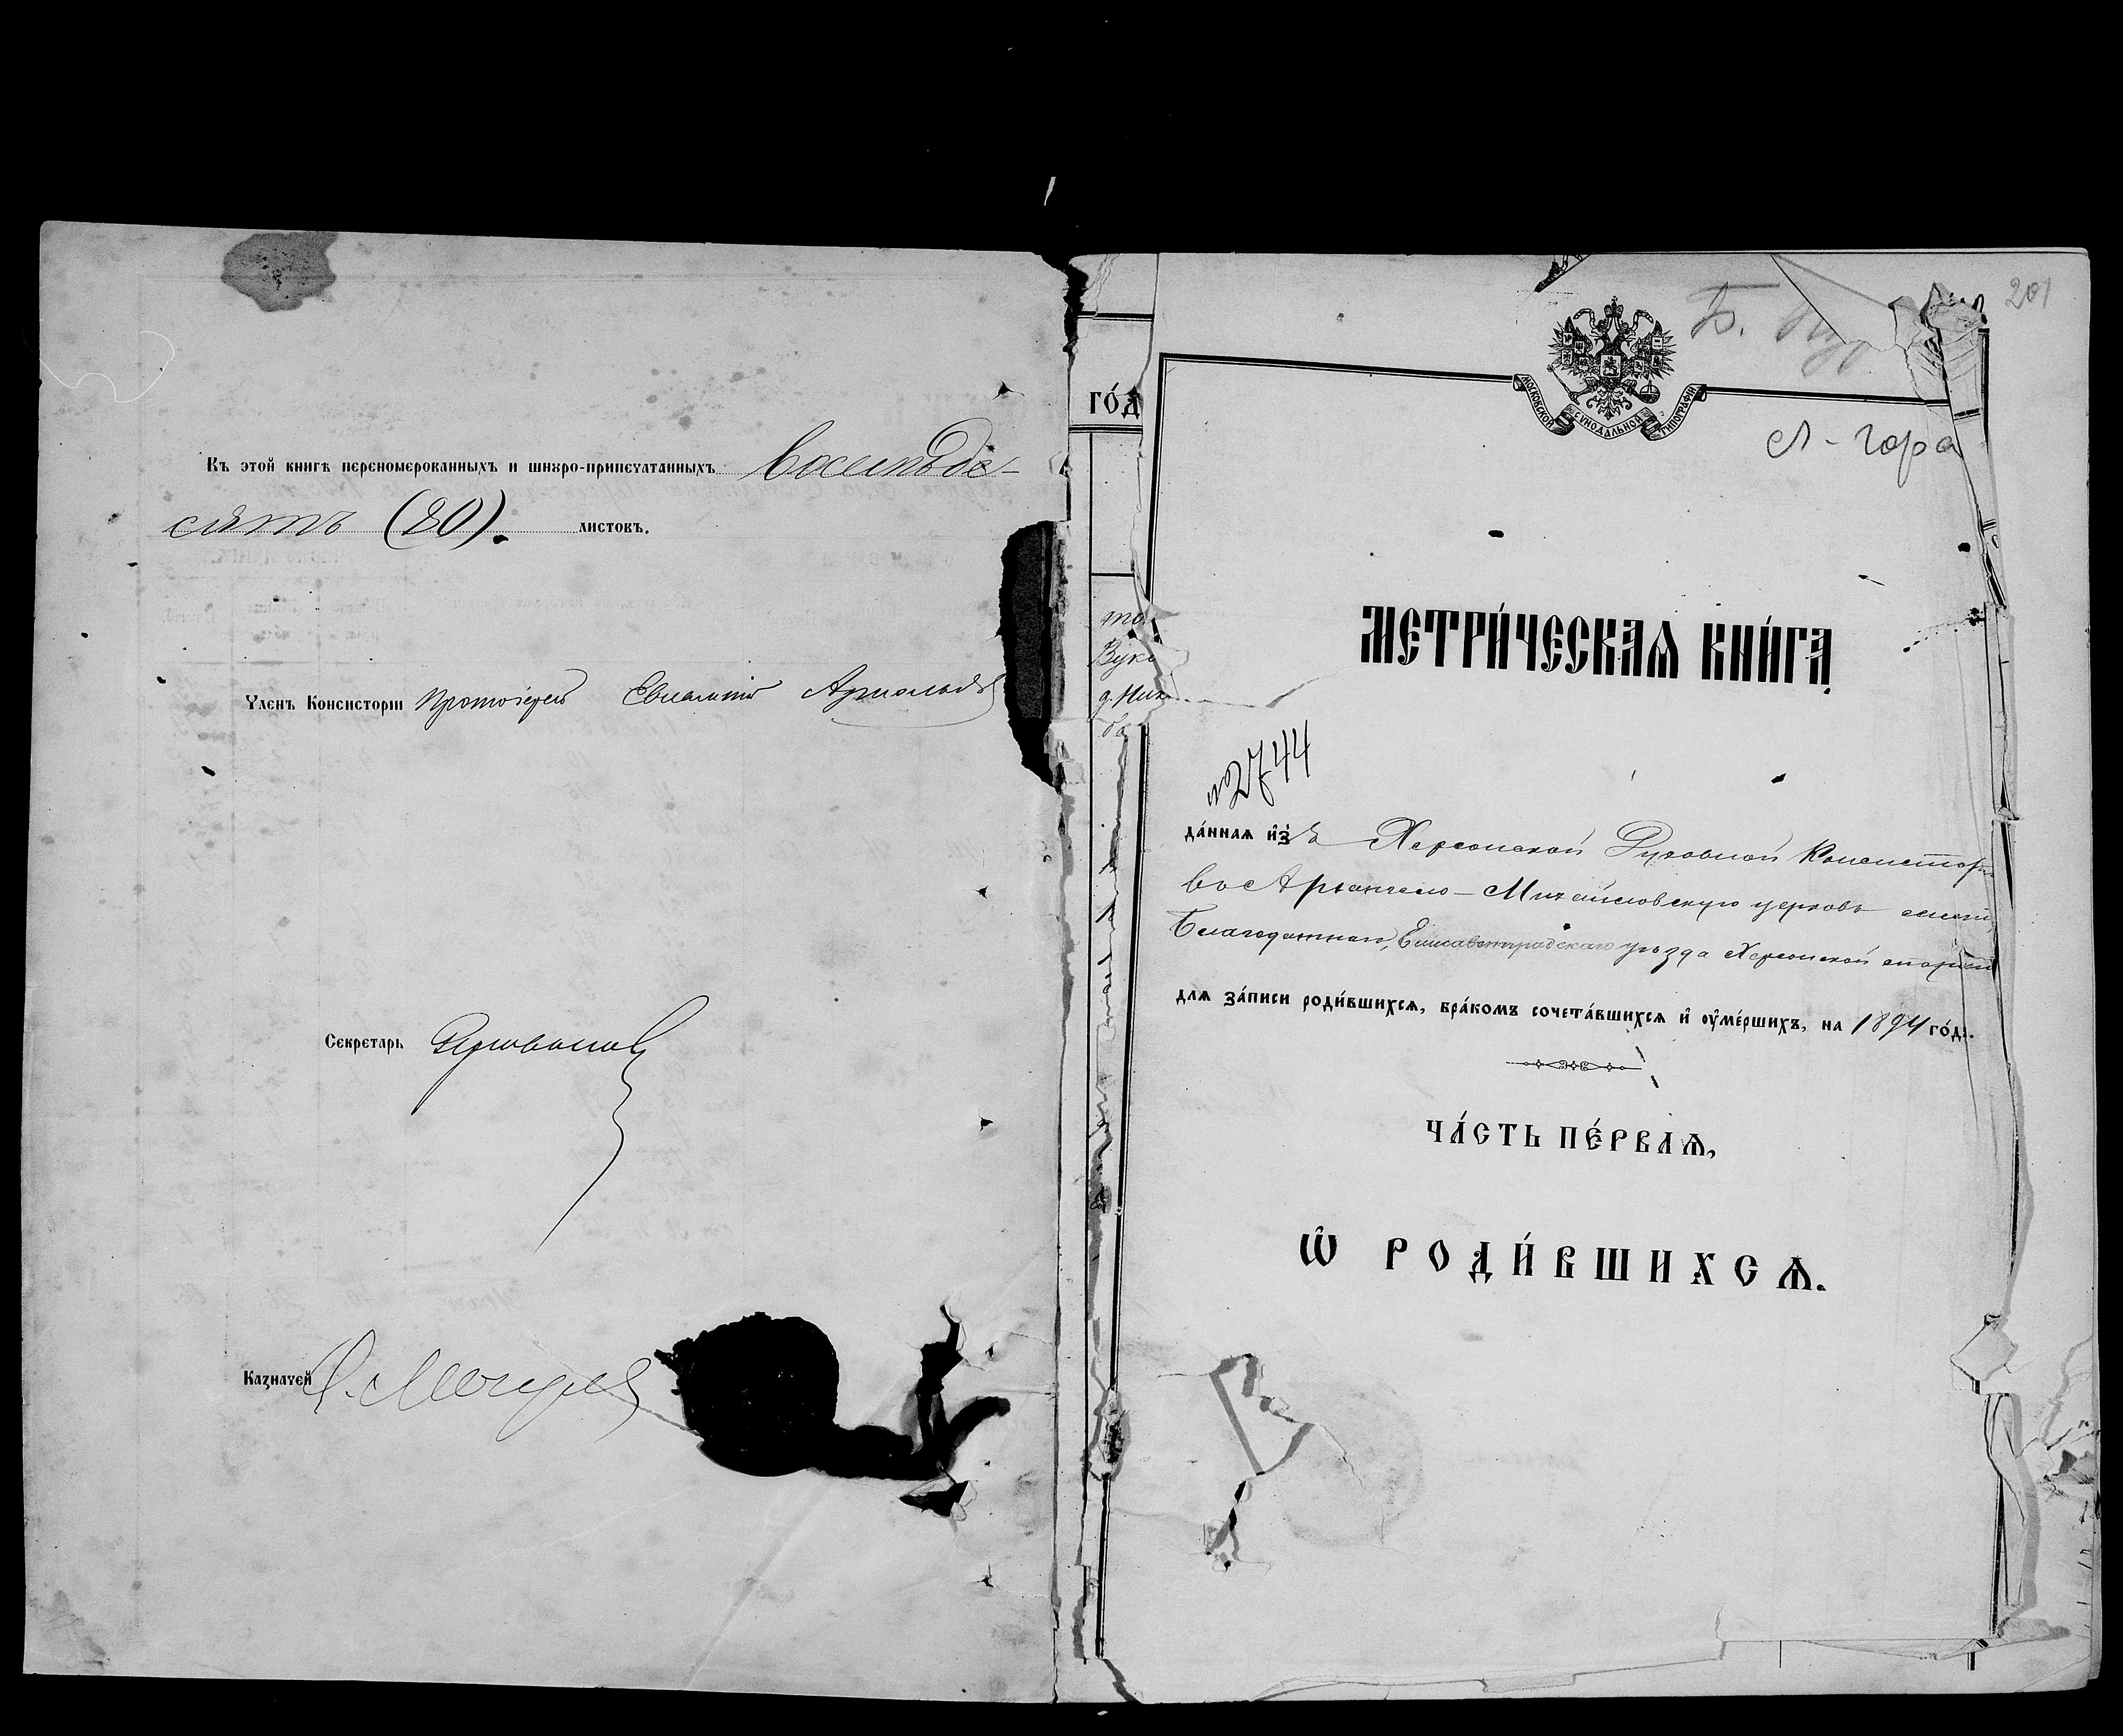 Въ этой книгѣ перенѡмерованныхъ и шнуро-припечатанныхъ восемьде-
сятъ (80). листовъ.
Членъ Консисторіи Протоіерей Евлампій Арнольдовъ
Секретарь
Казначей
гóд
201
МОСКОВСКОЙ СУНОДАЛЬНОЙ ТИПОГРАФІИ
А-гора
МЕТРИ́ЧЕСКАѦ КНИ́ГА
№2744
да́ннаѧ и҆зъ Херсонской Духовной Консистор
во Архангело-Михайловскую церковь
Благодатнаго, Елисаветградскаго уѣзда Херсонской епархіи
длѧ за́писи роди́вшихсѧ, бра́комъ сочета́вшихсѧ и҆ ѹ҆ме́ршихъ, на 1894 го́дъ.
ЧА́СТЬ ПЕ́РВАѦ,
Ѡ҆ РОДИ́ВШИХСѦ.